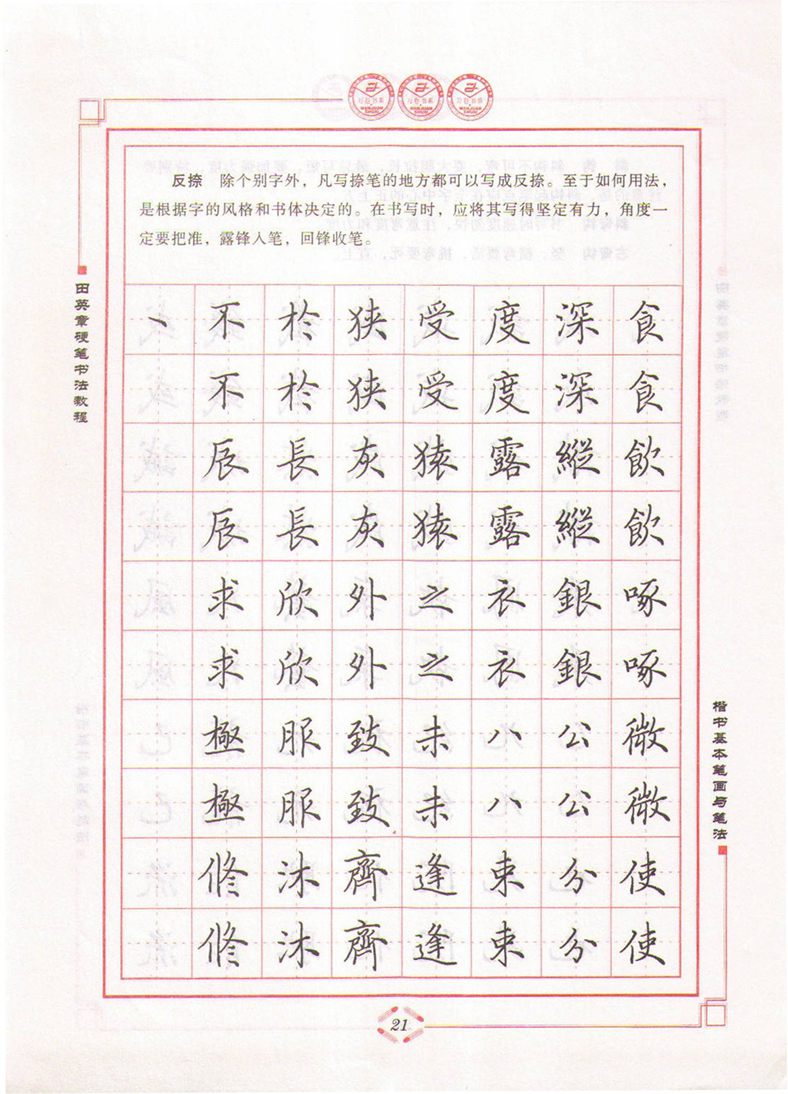 反捺　除个别字外，凡写捺笔的地方都可以写成反捺。至于如何用法，
是根据字的风格和书体决定的。在书写时，应将其写得坚定有力，角度一
定要把准，露锋入笔，回锋收笔。
田英章硬笔书法教程
丶 不 於 狭 受 度 深 食
不 於 狭 受 度 深 食
辰 長 灰 猿 露 縱 飲
辰 長 灰 猿 露 縱 飲
求 欣 外 之 衣 銀 啄
求 欣 外 之 衣 銀 啄
極 服 致 未 八 公 微
極 服 致 未 八 公 微
修 沐 齊 逢 束 分 使
修 沐 齊 逢 束 分 使
楷书基本笔画与笔法
21